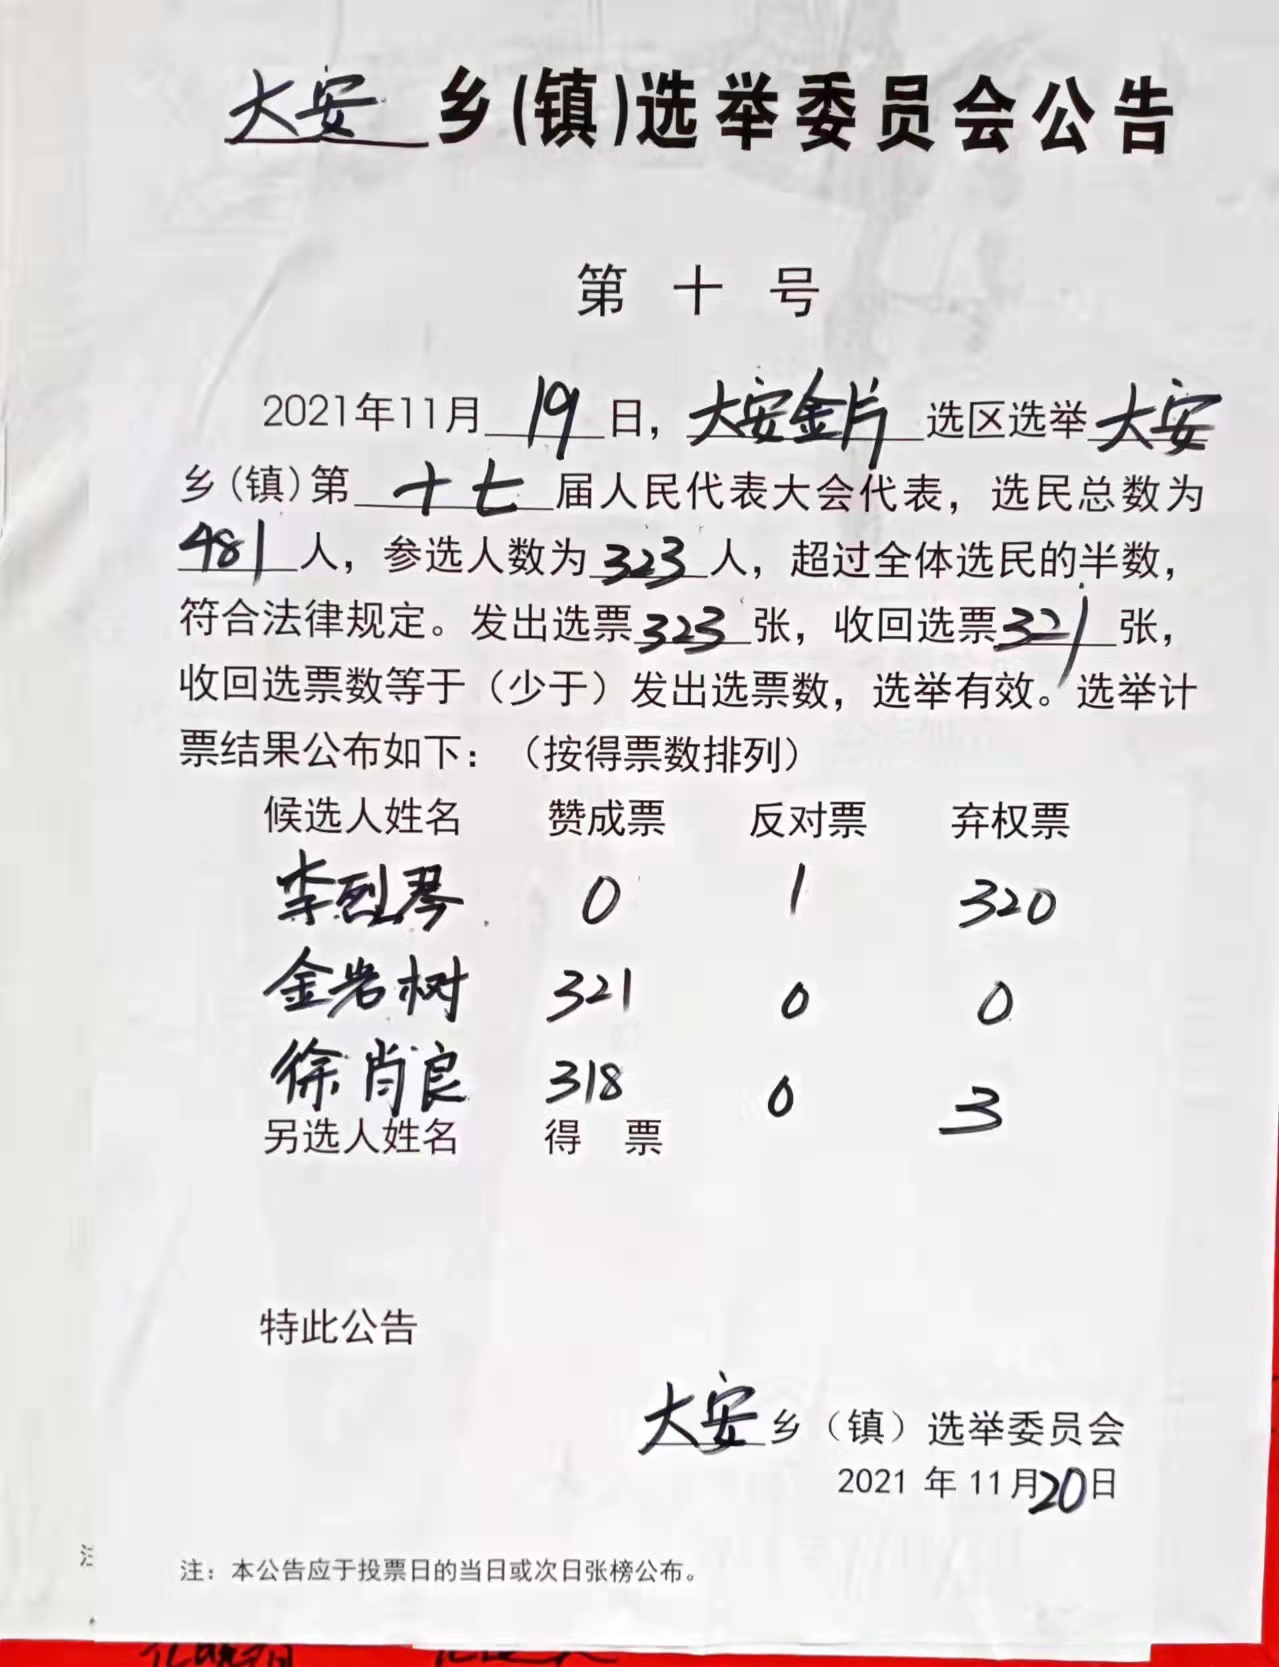 大安乡(镇)选举委员会公告
第十号
2021年11月19日，大安金片选区选举大安
乡(镇)第十七届人民代表大会代表，选民总数为
481人，参选人数为323人，超过全体选民的半数，
符合法律规定。发出选票323张，收回选票321张，
收回选票数等于（少于）发出选票数，选举有效。选举计
票结果公布如下：（按得票数排列）
候选人姓名 赞成票 反对票 弃权票
李烈琴 0 1 320
金岩树 321 0 0
徐肖良 318 0 3
另选人姓名 得 票
特此公告
大安乡（镇）选举委员会
2021年11月20日
注：本公告应于投票日的当日或次日张榜公布。
注